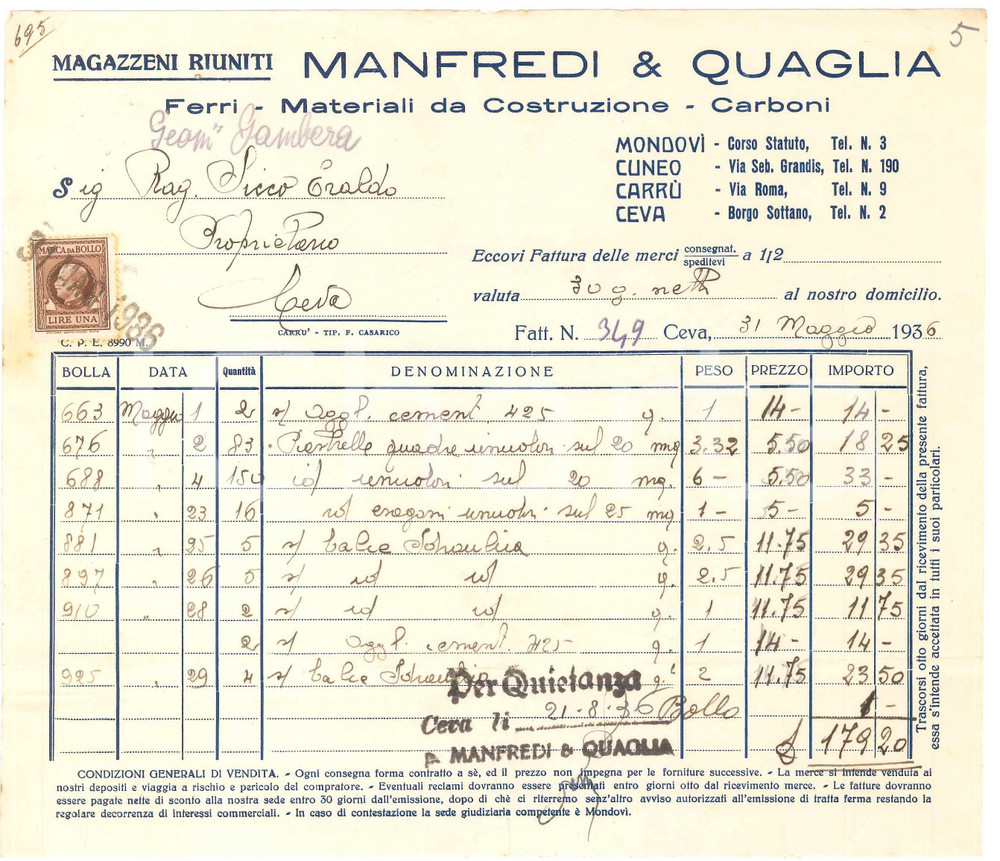 695
5
MAGAZZENI RIUNITI MANFREDI & QUAGLIA
Ferri - Materiali da Costruzione - Carboni
Geom. Gambera
MONDOVÌ - Corso Statuto, Tel. N. 3
CUNEO - Via Seb. Grandis, Tel. N. 190
CARRÙ - Via Roma, Tel. N. 9
CEVA - Borgo Sottano, Tel. N. 2
Sig Rag. Sicco Eraldo
Proprietario
Ceva
MARCA DA BOLLO
LIRE UNA
1936
CARRU' - TIP. F. CASARICO
C. P. E. 8990 M.
Eccovi Fattura delle merci consegnat. speditevi a 1/2
valuta 30 g. netti al nostro domicilio.
Fatt. N. 349 Ceva, 31 Maggio 1936
BOLLA DATA Quantità DENOMINAZIONE PESO PREZZO IMPORTO
663 Maggio 1 2 s/ Aggl. cement. 425 q. 1 14- 14-
676 " 2 83 Piastrelle quadre unicolori sul 20 mq 3.32 5.50 18 25
688 " 4 150 id unicolori sul 20 mq. 6- 5.50 33-
871 " 23 16 id esagoni unicolori sul 25 mq 1- 5- 5-
881 " 25 5 s/ Calce Idraulica q. 2,5 11.75 29 35
897 " 26 5 s/ id id q. 2.5 11.75 29 35
910 " 28 2 s/ id id q. 1 11.75 11 75
2 s/ Aggl. cement. 425 q. 1 14- 14-
925 " 29 4 s/ Calce Idraulica q. 2 11.75 23 50
Per Quietanza
Ceva li 21-8-36 Bollo 1-
p. MANFREDI & QUAGLIA
£ 179 20
Trascorsi otto giorni dal ricevimento della presente fattura,
essa s'intende accettata in tutti i suoi particolari.
CONDIZIONI GENERALI DI VENDITA. - Ogni consegna forma contratto a sè, ed il prezzo non impegna per le forniture successive. - La merce si intende venduta ai
nostri depositi e viaggia a rischio e pericolo del compratore. - Eventuali reclami dovranno essere presentati entro giorni otto dal ricevimento merce. - Le fatture dovranno
essere pagate nette di sconto alla nostra sede entro 30 giorni dall'emissione, dopo di chè ci riterremo senz'altro avviso autorizzati all'emissione di tratta ferma restando la
regolare decorrenza di interessi commerciali. - In caso di contestazione la sede giudiziaria competente è Mondovì.